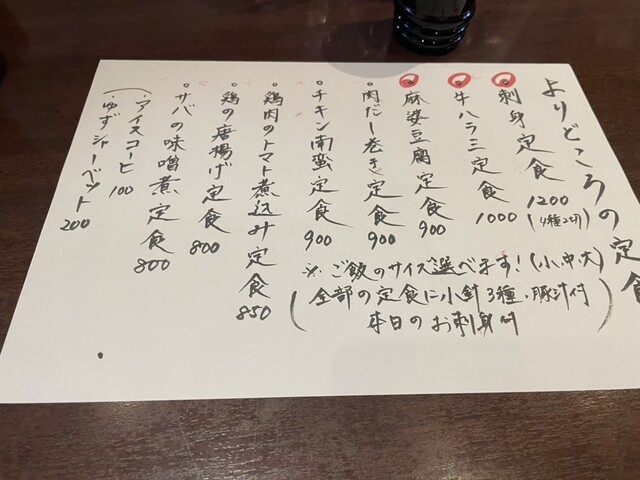 よりどころの定食
刺身定食 1200
(4種2切)
牛ハラミ定食 1000
麻婆豆腐定食 900
・肉だし巻き定食 900
チキン南蛮定食 900
鶏肉のトマト煮込み定食 850
鶏の唐揚げ定食 800
サバの味噌煮定食 800
・アイスコーヒ 100
・ゆずシャーベット 200
※ご飯のサイズ選べます!(小中大)
(全部の定食に小鉢3種・豚汁付
本日のお刺身付)